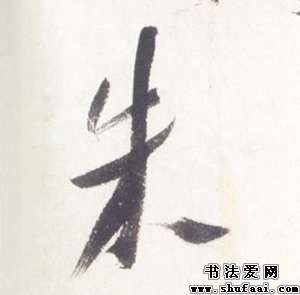 朱
书法爱网
www.shufaai.com